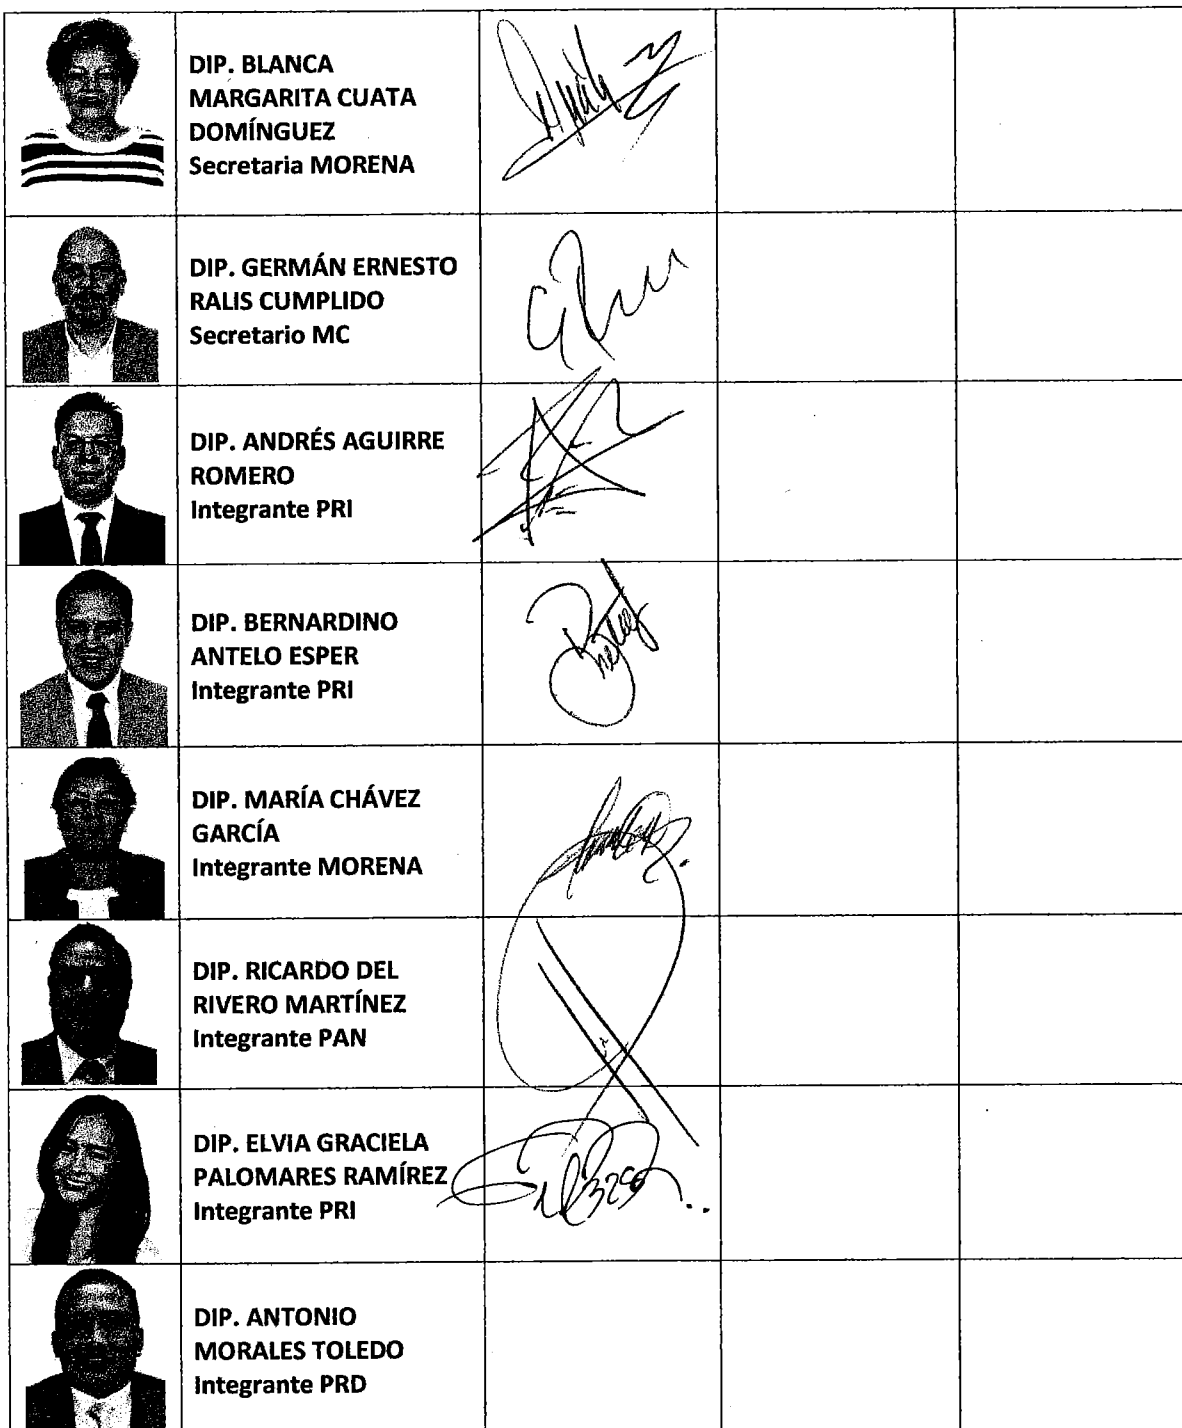 DIP. BLANCA
MARGARITA CUATA
DOMÍNGUEZ
Secretaria MORENA
DIP. GERMÁN ERNESTO
RALIS CUMPLIDO
Secretario MC
DIP. ANDRÉS AGUIRRE
ROMERO
Integrante PRI
DIP. BERNARDINO
ANTELO ESPER
Integrante PRI
DIP. MARÍA CHÁVEZ
GARCÍA
Integrante MORENA
DIP. RICARDO DEL
RIVERO MARTÍNEZ
Integrante PAN
DIP. ELVIA GRACIELA
PALOMARES RAMÍREZ
Integrante PRI
DIP. ANTONIO
MORALES TOLEDO
Integrante PRD